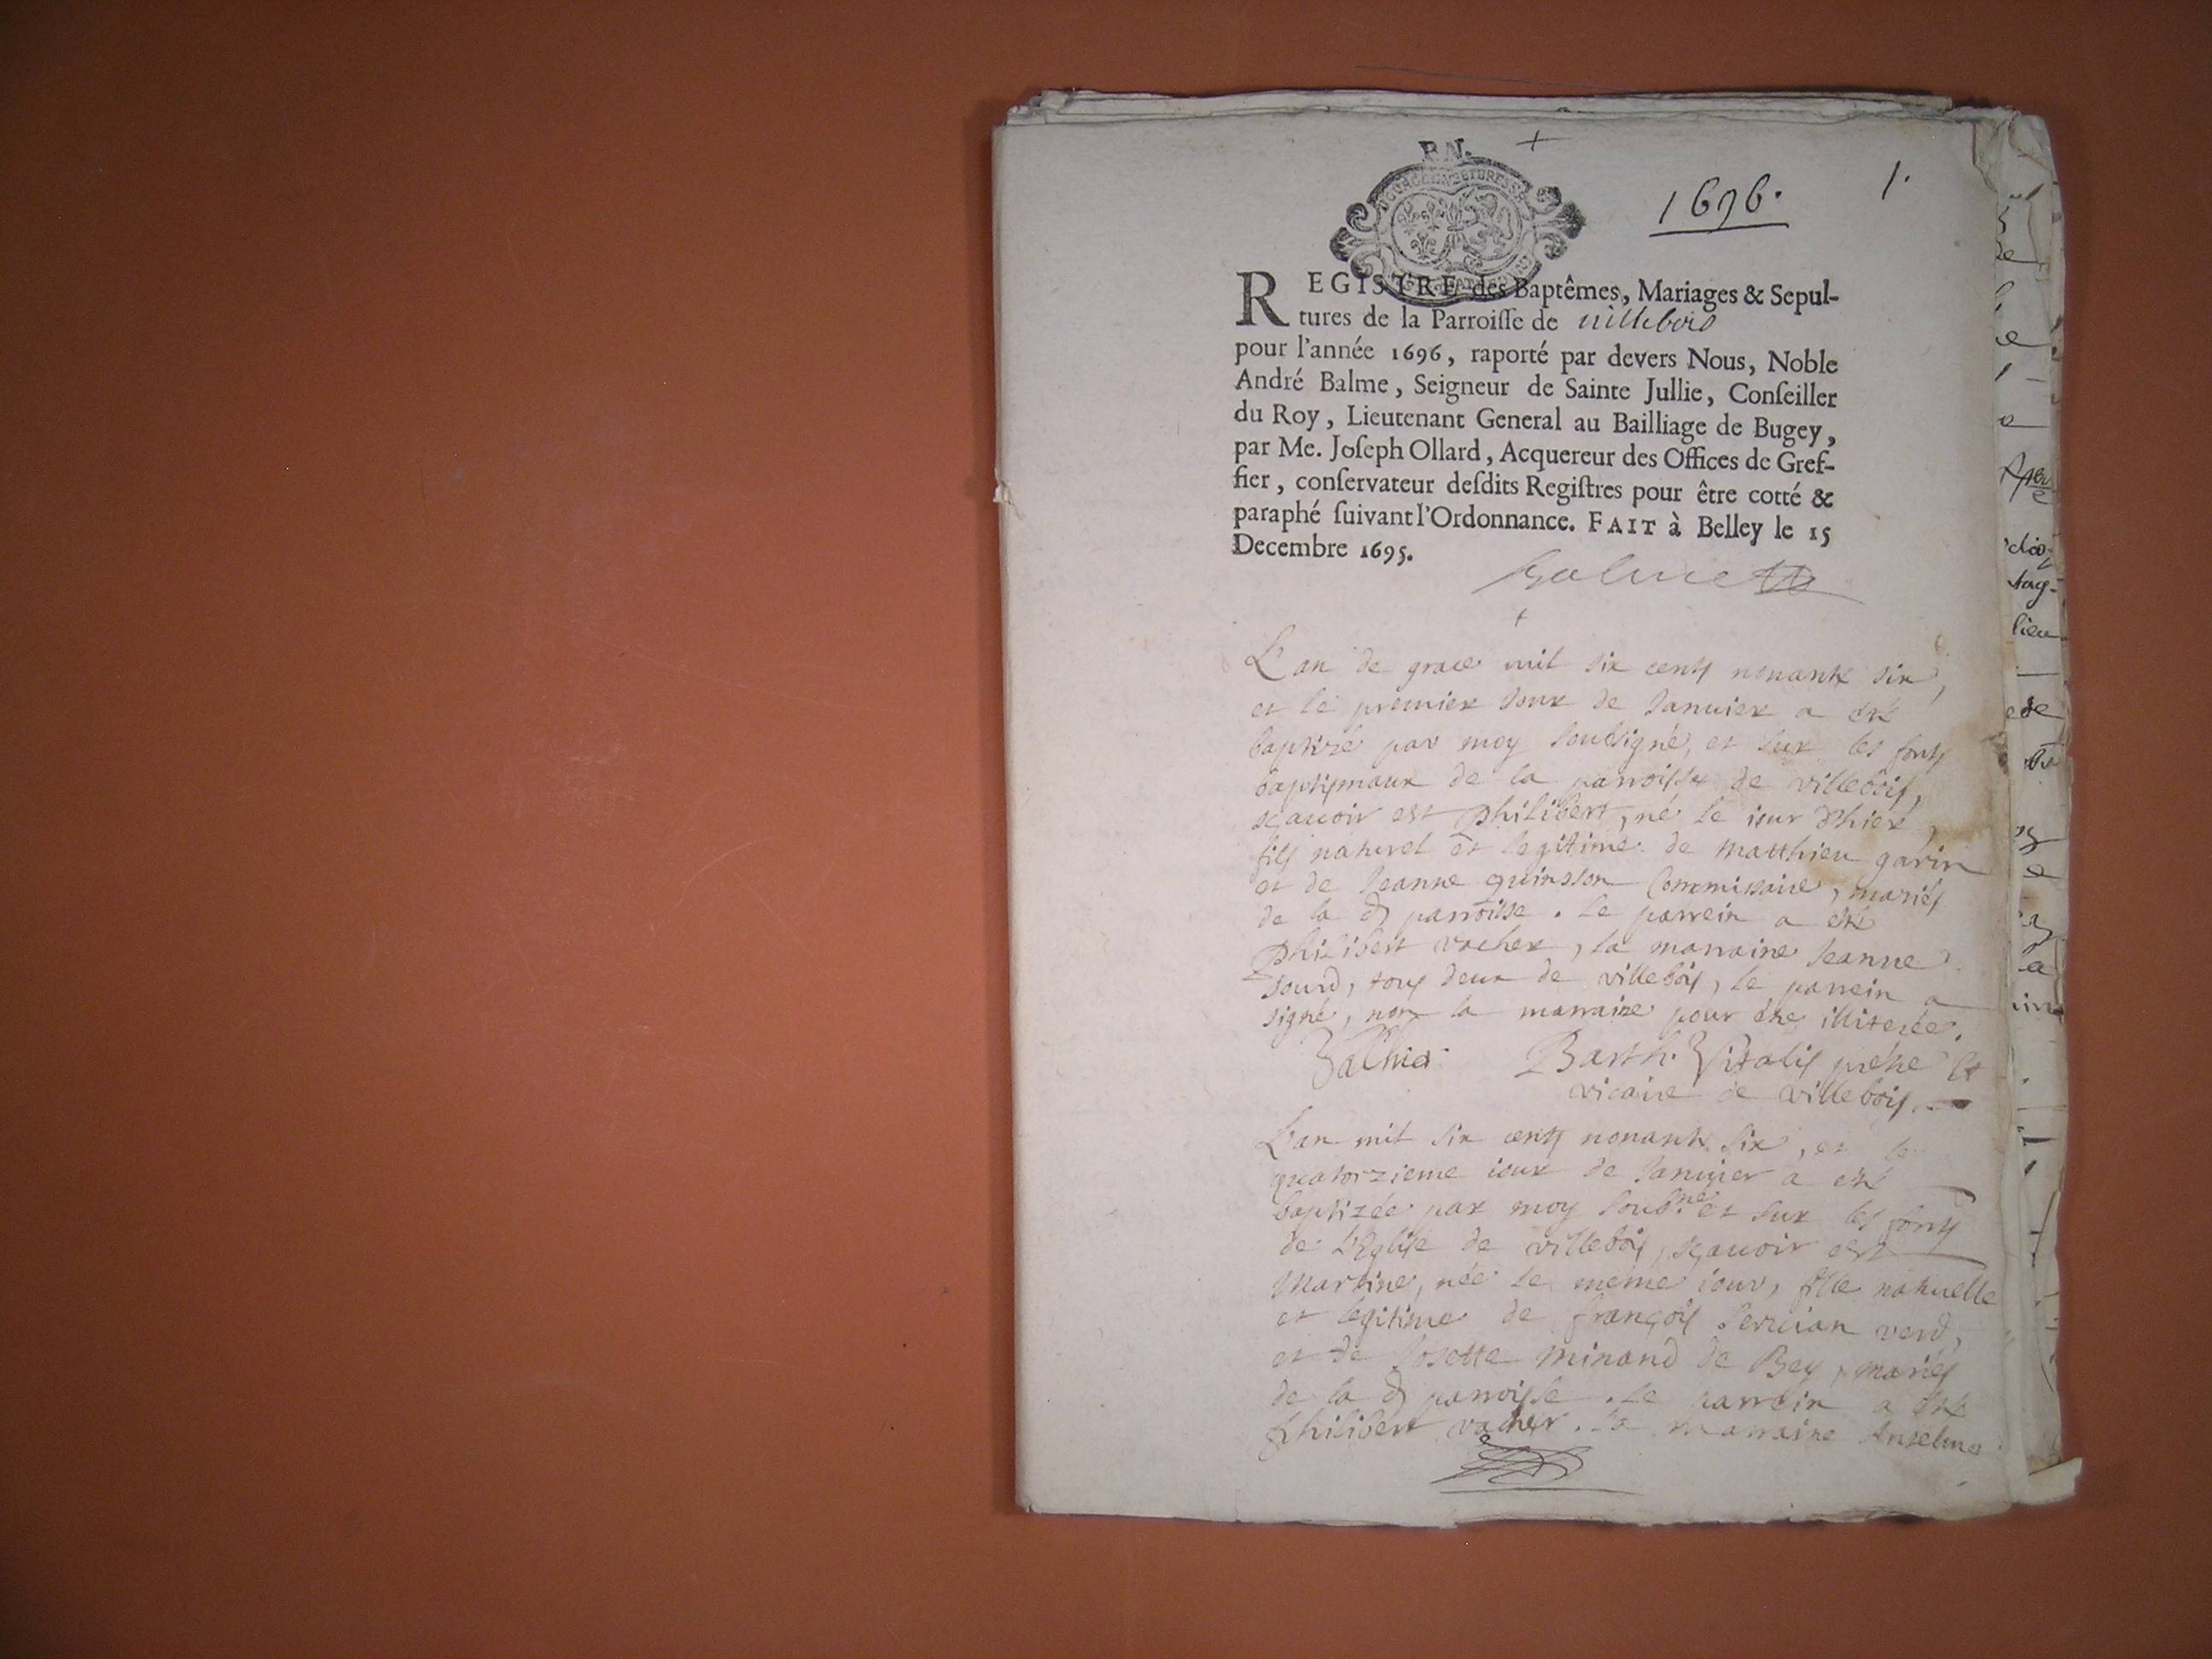 BN.
1696.
1.
REGISTRE des Baptêmes, Mariages & Sepul-
tures de la Parroisse de villebois
pour l'année 1696, raporté par devers Nous, Noble
André Balme, Seigneur de Sainte Jullie, Conseiller
du Roy, Lieutenant General au Bailliage de Bugey,
par Me. Joseph Ollard, Acquereur des Offices de Gref-
fier, conservateur desdits Registres pour être cotté &
paraphé suivant l'Ordonnance. FAIT à Belley le 15
Decembre 1695.
Balme
L'an de grace mil six cents nonante six,
et le premier Jour de Janvier a esté
baptizé par moy soubsigné, et sur les fonts
baptismaux de la parroisse de villebois,
sçavoir est philibert, né le iour d'hier,
fils naturel et legitime de Matthieu garin
et de Jeanne quinsson Commissaire, mariés
de la d parroisse. le parrein a esté
philibert vacher, la marraine Jeanne
sourd, tous deux de villebois, le parrein a
signé, non la marraine pour être illiterée.
Barth. Vitalis prêtre et
vicaire de villebois
L'an mil six cents nonante six, et le
quatorzieme iour de Janvier a esté
baptizée par moy soub.né et sur les fonts
de L'Eglise de villebois, sçavoir est
Martine, née le même iour, fille naturelle
et legitime de françois verd,
et de Josette minand de Bey, mariés
de la d parroisse. le parrein a esté
philibert vacher. la marraine Anselma